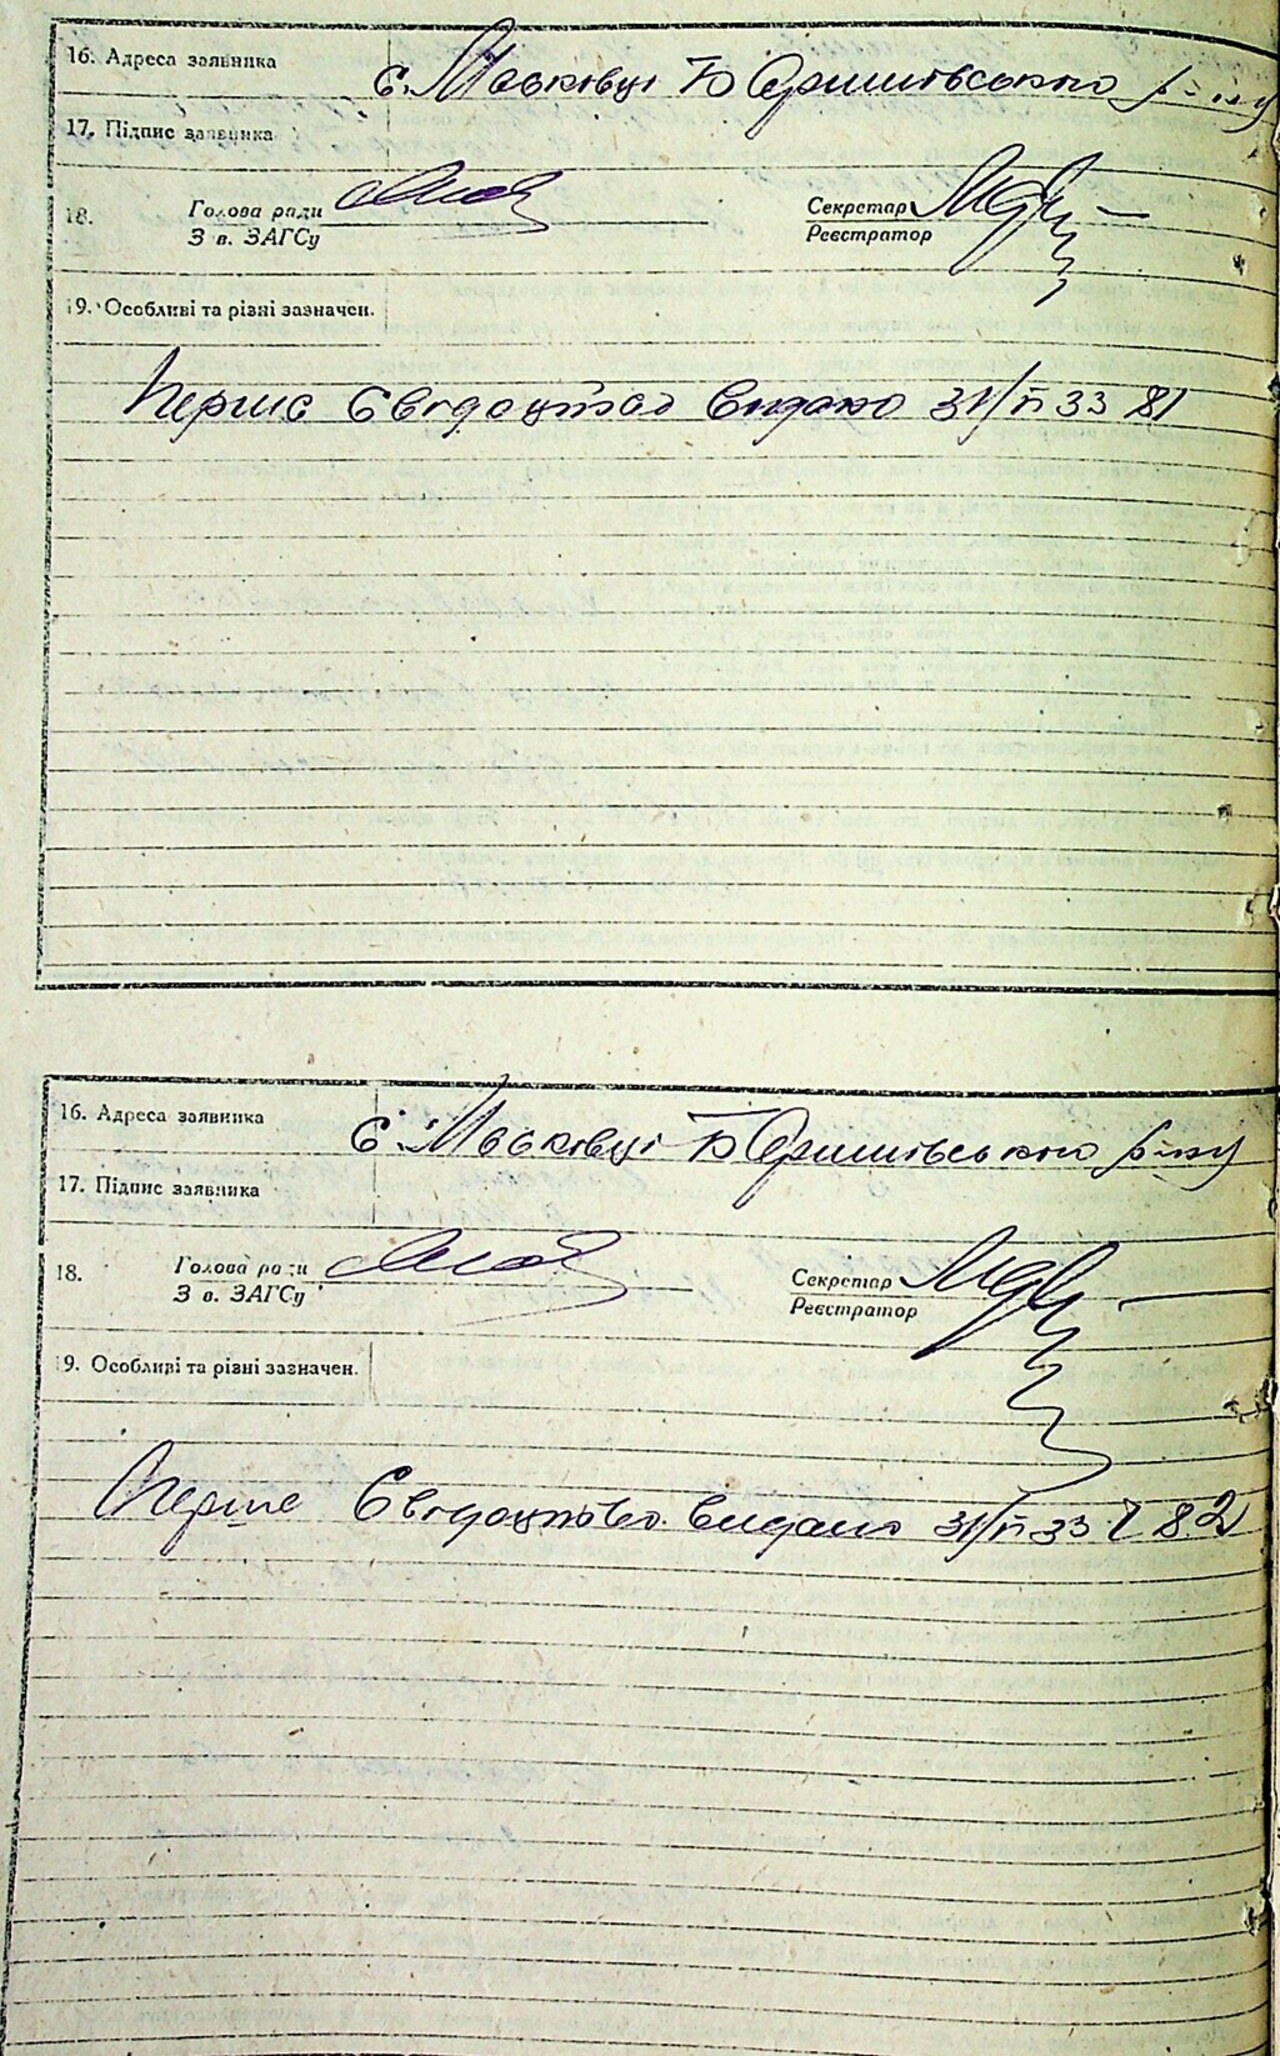 16. Адреса заявника с. Маськівці Баришівського р-ну
17. Підпис заявника
18. Голова ради Секретар
З в. ЗАГСу Реєстратор
19. Особливі та різні зазначен.
Перше Свідоцтво видано 31/ 33 81
16. Адреса заявника с. Маськівці Баришівського р-ну
17. Підпис заявника
18. Голова ради Секретар
З в. ЗАГСу Реєстратор
19. Особливі та різні зазначен.
Перше Свідоцтво видано 31/ 33 82